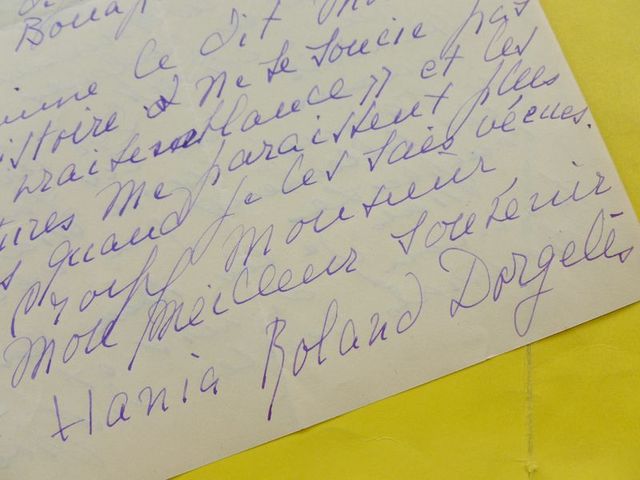 Bonap
comme le dit
istoire & ne se soucie pas
vraisemblance » et les
tures me paraissent plus
s quand je les sais vécues.
Croyez Monsieur
mon meilleur souvenir
Hania Roland Dorgelès